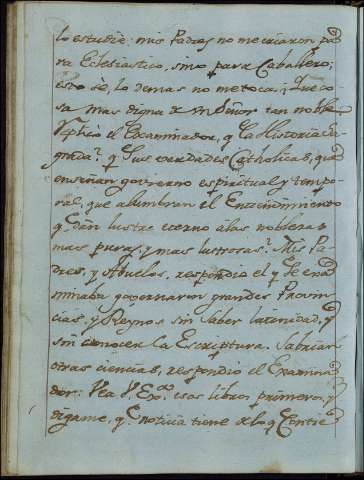 lo estudie: mis Padres no me criaron pa
ra Eclesiastico, sino para Caballero;
esto sè, lo demas no me toca. Que co
sa mas digna de un Señor tan noble
replicó el Examinador, q̃ la Historia Sa
grada? q̃ sus verdades Catholicas, que
enseñan govierno espiritual y tempo
ral, que alumbran el Entendimiento
q̃ dàn lustre eterno a las noblezas
mas puras, y mas lustrosas? Mis Pa
dres, y Abuelos, respondio el q̃ se exa
minaba governaron grandes Provin
cias, y Reynos sin saber latinidad, y
sin conocer la Escriptura. Sabrian
otras ciencias, respondio el Examina
dor: Vea V. Exª. esos libros primeros, y
digame, q̃ noticia tiene de lo q̃ Contie